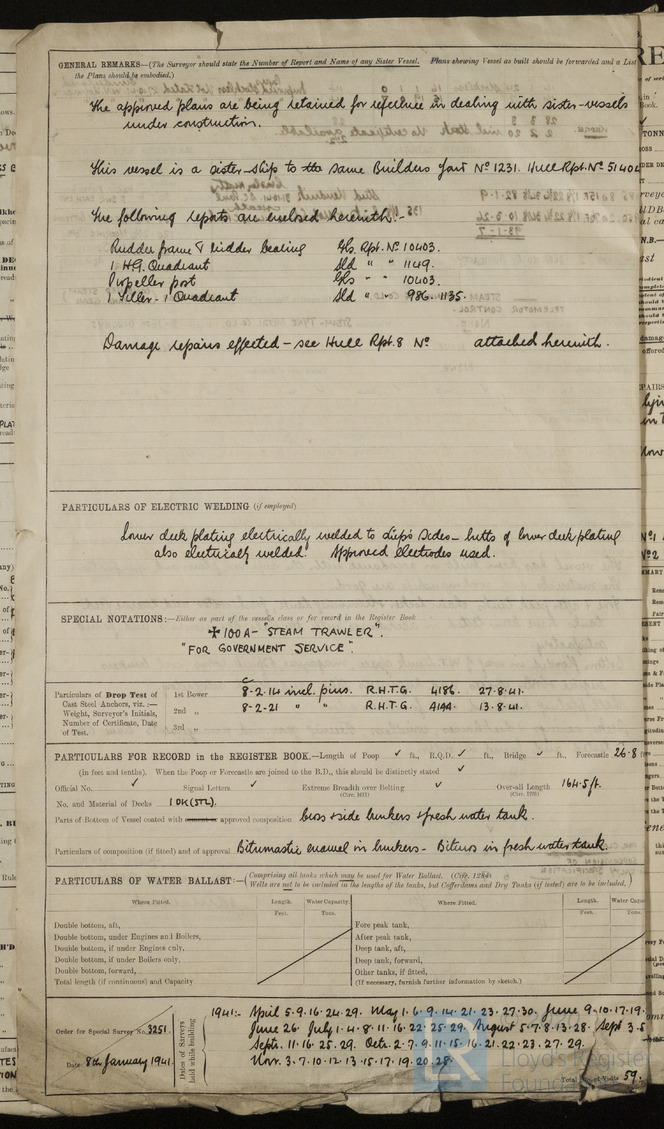 GENERAL REMARKS—(The Surveyor should state the Number of Report and Name of any Sister Vessel. Plans shewing Vessel as built should be forwarded and a List
the Plans should be embodied.)
The approved plans are being retained for reference in dealing with sister-vessels
under construction.
This vessel is a sister-ship to the same Builders Yard No 1231. Hull Rpt. No 51404
The following reports are enclosed herewith:-
Rudder frame & rudder bearing Gls. Rpt. No 10403.
1 H.G. Quadrant Sld " " 1149.
Propeller post Gls - - 10403.
1 Tiller - 1 Quadrant Sld " " 986. 1135.
Damage repairs effected - see Hull Rpt. 8 No attached herewith.
PARTICULARS OF ELECTRIC WELDING (if employed)
Lower deck plating electrically welded to ship's sides - butts of lower deck plating
also electrically welded. Approved electrodes used.
SPECIAL NOTATIONS:—Either as part of the vessel's class or for record in the Register Book
✠100A- "STEAM TRAWLER".
"FOR GOVERNMENT SERVICE".
Particulars of Drop Test of
Cast Steel Anchors, viz.:—
Weight, Surveyor's Initials,
Number of Certificate, Date
of Test.
1st Bower 8-2-14 incl. pins. R.H.T.G. 4186. 27.8.41.
2nd " 8-2-21 " " R.H.T.G. 4144. 13.8.41.
3rd "
PARTICULARS FOR RECORD in the REGISTER BOOK.—Length of Poop ✓ ft., R.Q.D. ✓ ft., Bridge ✓ ft., Forecastle 26.8 ft
(in feet and tenths). When the Poop or Forecastle are joined to the B.D., this should be distinctly stated ✓
Official No. ✓ Signal Letters ✓ Extreme Breadth over Belting ✓ Over-all Length 164.5 ft.
(Circ. 1611) (Circ. 1703)
No. and Material of Decks 1 DK (STL).
Parts of Bottom of Vessel coated with cement or approved composition Cross & side bunkers & fresh water tank.
Particulars of composition (if fitted) and of approval Bitumastic enamel in bunkers - Bituros in fresh water tank.
PARTICULARS OF WATER BALLAST:—(Comprising all tanks which may be used for Water Ballast.
Wells are not to be included in the lengths of the tanks, but Cofferdams and Dry Tanks (if tested) are to be included.)
Where Fitted. Length. Water Capacity. Where Fitted. Length. Water Capac
Feet. Tons. Feet. Tons.
Double bottom, aft, Fore peak tank,
Double bottom, under Engines and Boilers, After peak tank,
Double bottom, if under Engines only, Deep tank, aft,
Double bottom, if under Boilers only, Deep tank, forward,
Double bottom, forward, Other tanks, if fitted,
Total length (if continuous) and Capacity (If necessary, furnish further information by sketch.)
Order for Special Survey No. 3251.
Date 8th January 1941.
Dates of Surveys
held while building
1941:- April 5.9.16.24.29. May 1.6.9.14.21.23.27.30. June 9.10.17.19.
June 26. July 1.4.8.11.16.22.25.29. August 5.7.8.13.28. Sept 3.5
Septr. 11.16.25.29. Octr. 2.7.9.11.15.16.21.22.23.27.29.
Nov. 3.7.10.12.13.15.17.19.20.25.
Total No. of Visits 59.
Lloyd's Register
Foundation